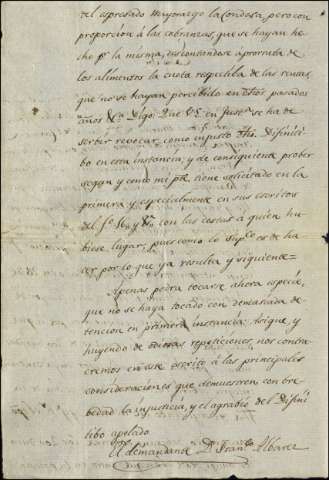 del expresado Mayorazgo la Condesa, pero con
proporcion á las cobranzas, que se hayan he-
cho pr. la misma, descontandose aprorrata de
los alimentos la cuota respectiba de las rentas,
que no se hayan percibido en estos pasados
años &a. Digo: Que VE. en Justa. se ha de
serbir revocar como injusto dho. Difiniti-
bo en esta instancia; y de consiguiente prober
segun y como mi pte. tiene solicitado en la
primera y especialmente en sus escritos
del fo. y con las costas a quien hu-
biese lugar, pues como lo supco. es de ha-
cer por lo que yá resulta y siguiente=
Apenas podra tocarse ahora especie,
que no se haya tocado con demasiada de-
tencion en primera instancia: Asi que, y
huyendo de repeticiones, nos contra-
eremos en este escrito á las principales
consideraciones que demuestren con bre-
bedad la injusticia, y el agrabio del Difini-
tibo apelado.
El demandante Dn. Franco. Albarez